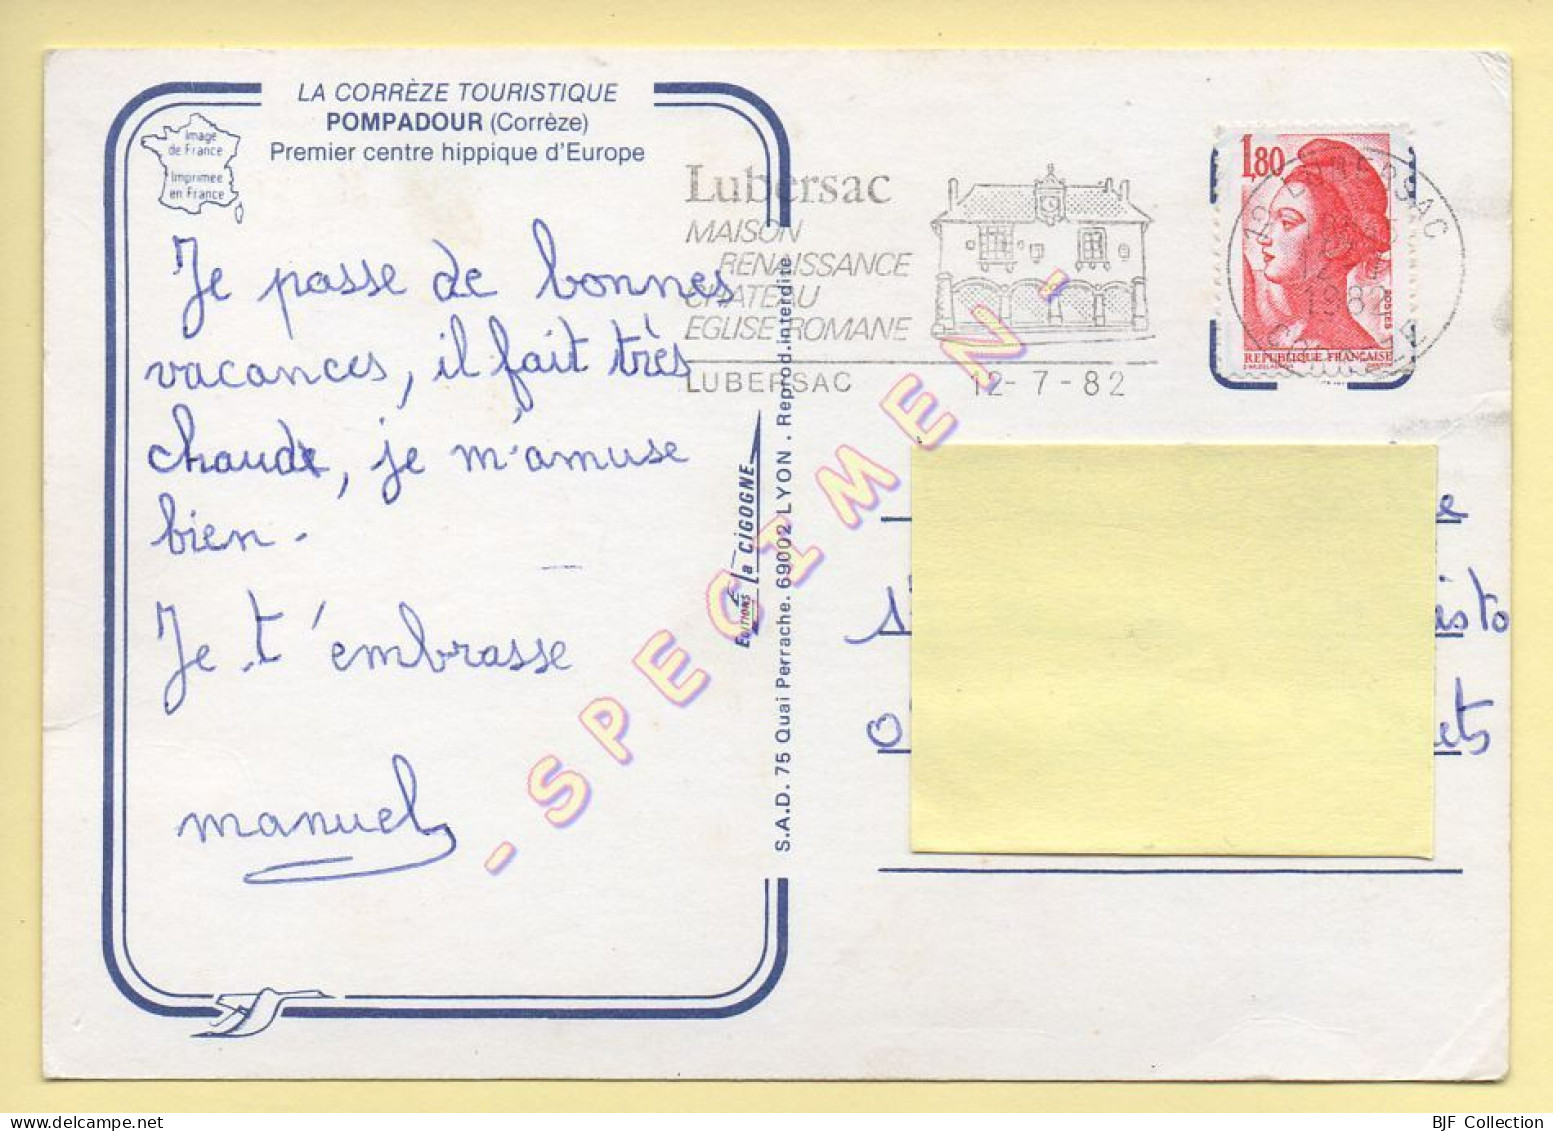 LA CORRÈZE TOURISTIQUE
POMPADOUR (Corrèze)
Premier centre hippique d'Europe
Image
de France
Imprimée
en France
Je passe de bonnes
vacances, il fait très
chaud, je m'amuse
bien.
Je t'embrasse
manuel
Lubersac
MAISON
RENAISSANCE
CHATEAU
EGLISE ROMANE
LUBERSAC 12-7-82
1,80
POSTES
REPUBLIQUE FRANÇAISE
19 LUBERSAC
12-7
1982
EDITIONS La CIGOGNE
S.A.D. 75 Quai Perrache. 69002 LYON. Reprod. interdite
- SPECIMEN -
BJF Collection